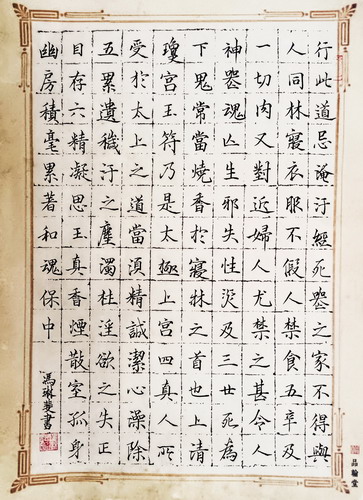 行此道忌淹汙經死喪之家不得與
人同牀寢衣服不假人禁食五辛及
一切肉又對近婦人尤禁之甚令人
神喪魂亡生邪失性災及三世死為
下鬼常當燒香於寢牀之首也上清
瓊宮玉符乃是太極上宮四真人所
受於太上之道當須精誠潔心澡除
五累遺穢汙之塵濁杜淫欲之失正
目存六精凝思玉真香煙散室孤身
幽房積毫累著和魂保中
馮琳斐書
品翰堂